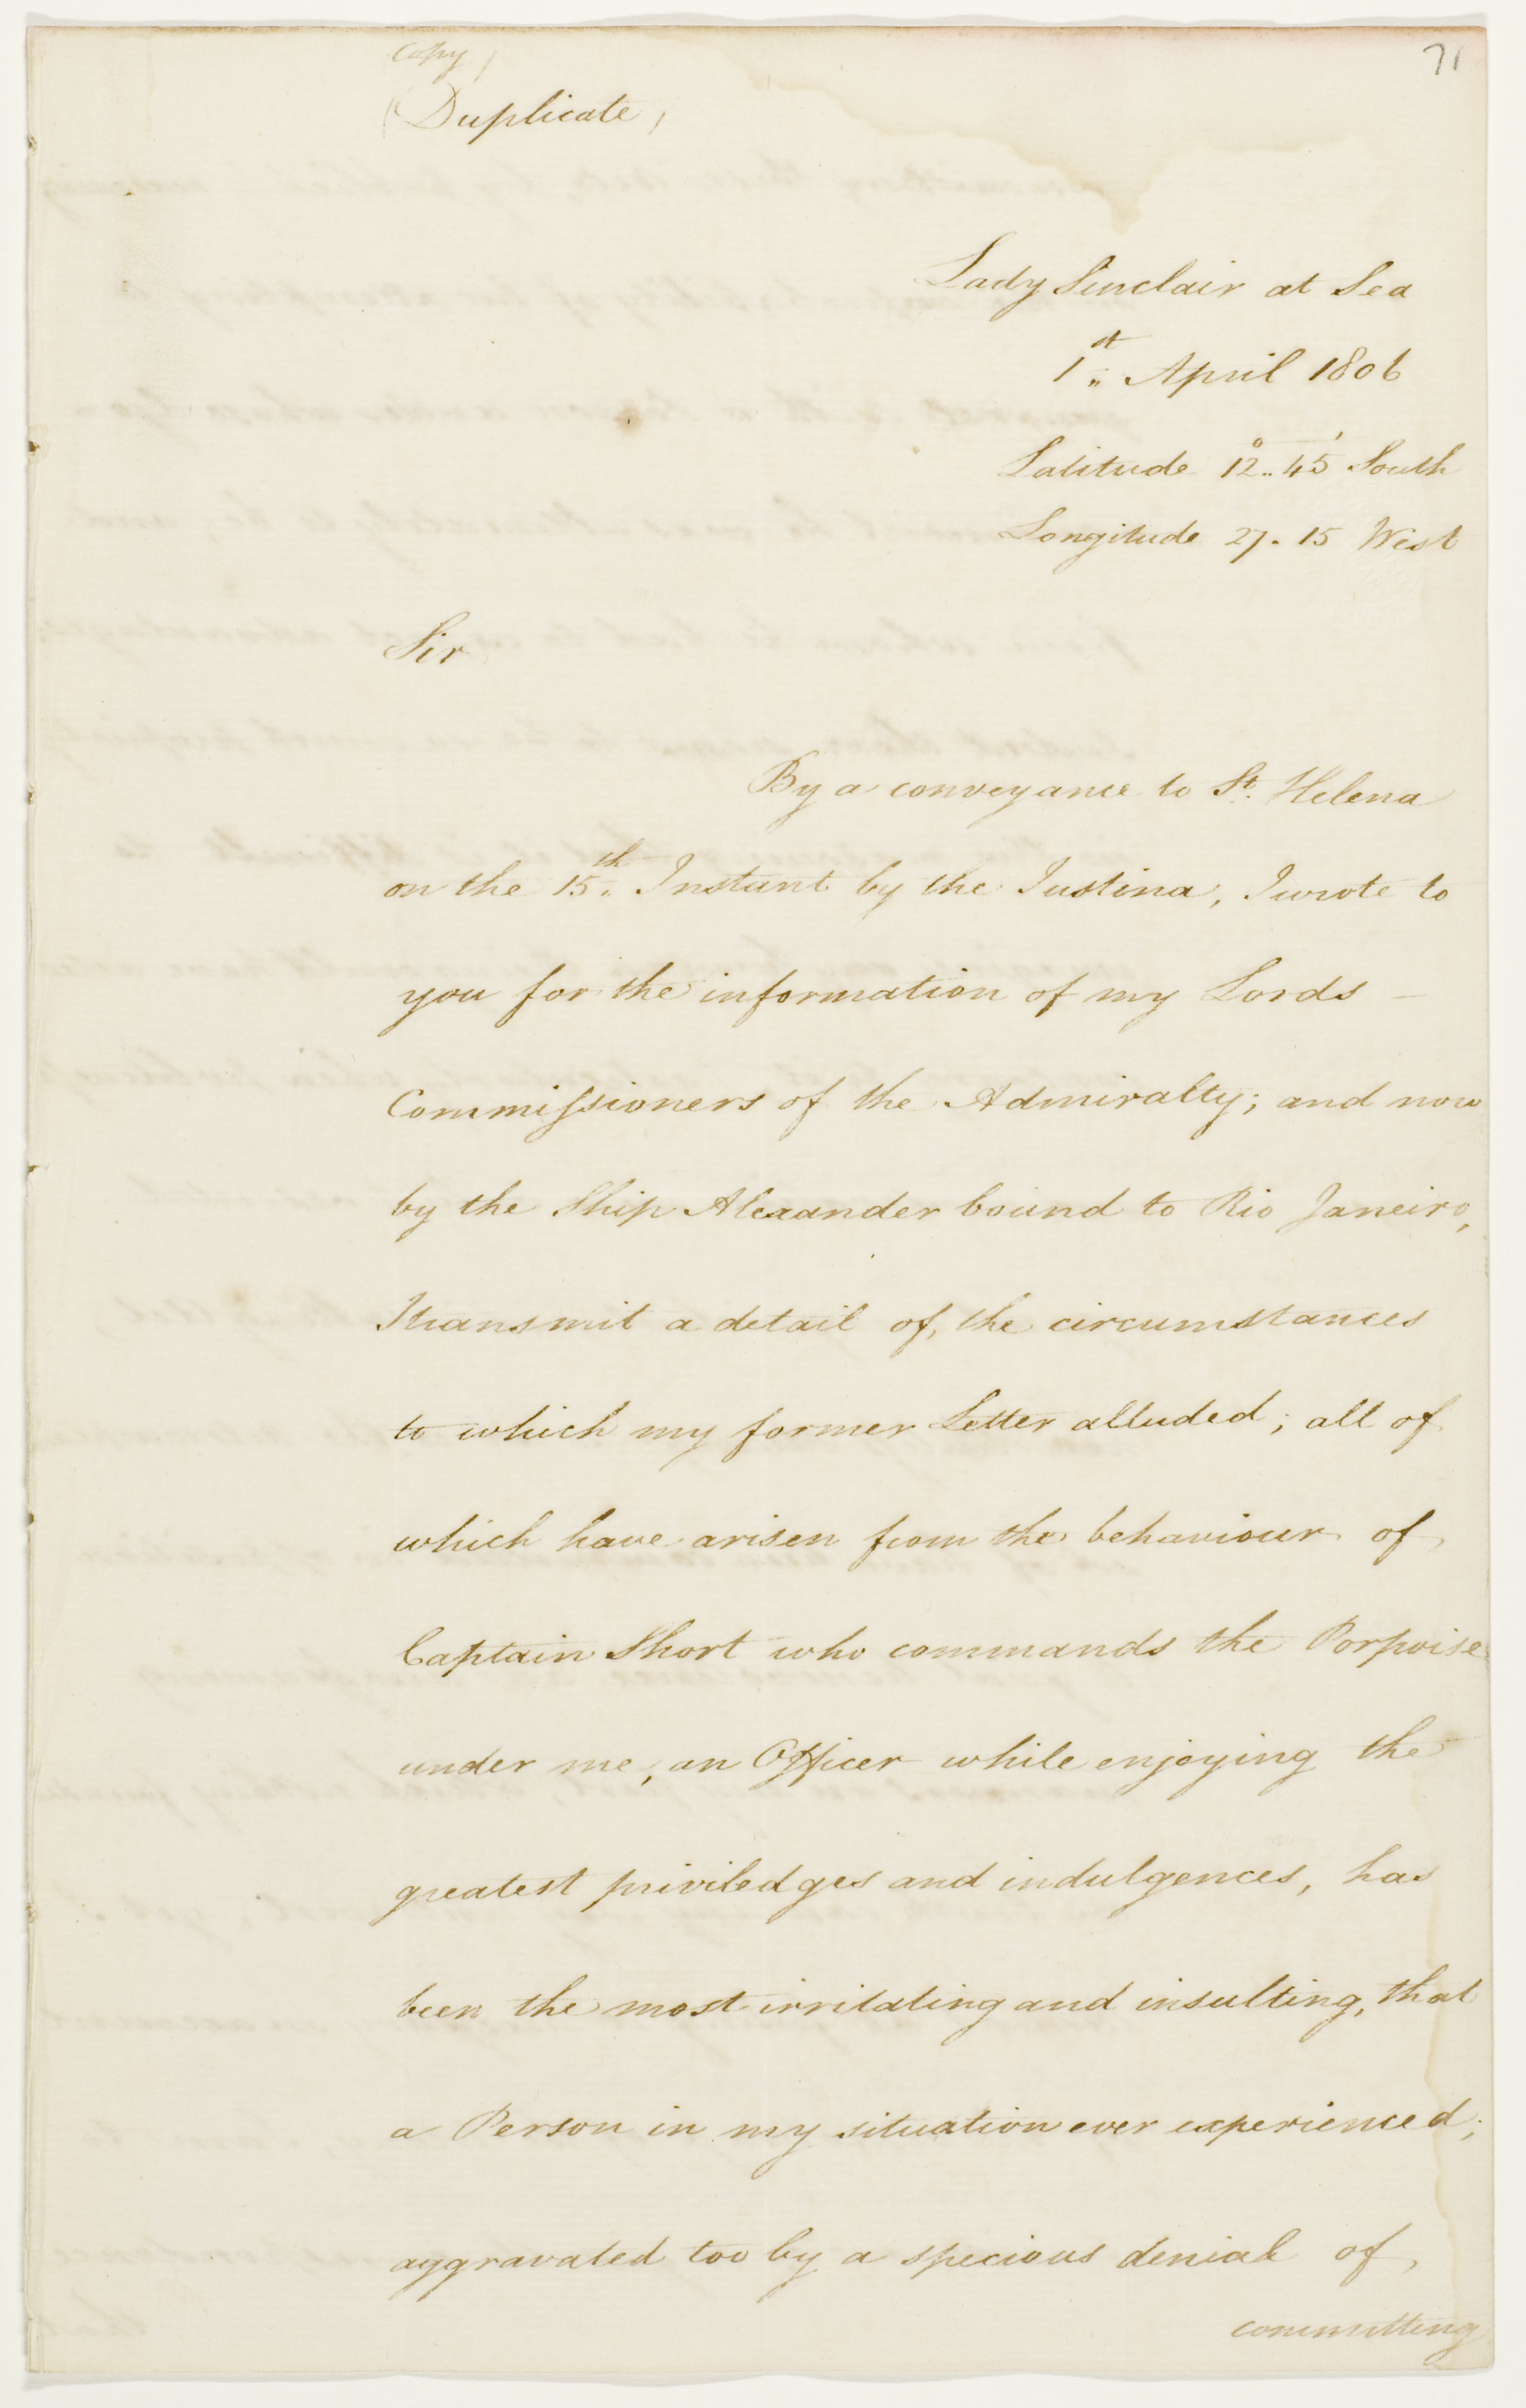 71
Copy
(Duplicate)
Lady Sinclair at Sea
1st April 1806
Latitude 12°..45' South
Longitude 27. 15 West
Sir
By a conveyance to St. Helena
on the 15th Instant by the Justina, I wrote to
you for the information of my Lords —
Commissioners of the Admiralty; and now
by the Ship Alexander bound to Rio Janeiro,
I transmit a detail of, the circumstances
to which my former Letter alluded; all of
which have arisen from the behaviour of,
Captain Short who commands the Porpoise
under me, an Officer while enjoying the
greatest priviledges and indulgences, has
been the most irritating and insulting, that
a Person in my situation ever experienced;
aggravated too by a specious denial of,
committing